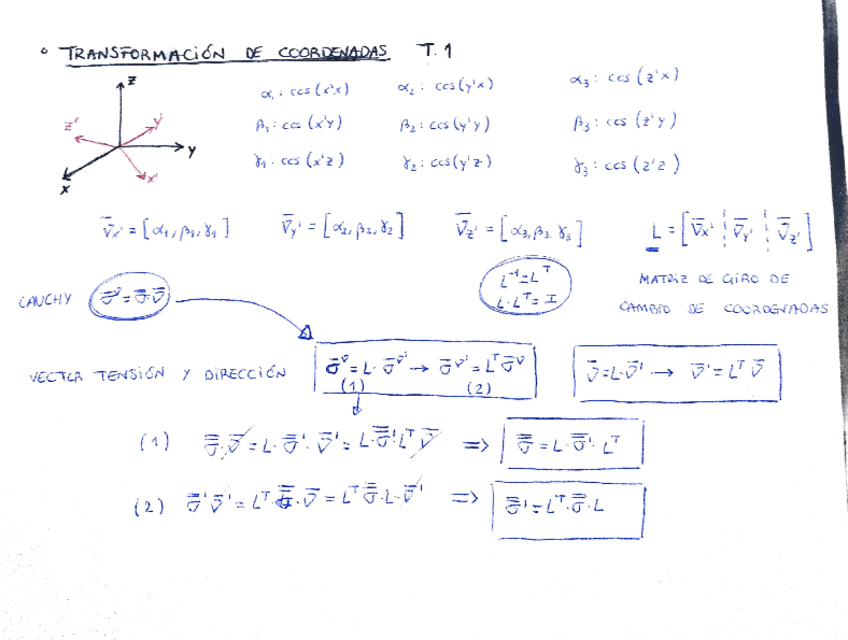 ° TRANSFORMACIÓN DE COORDENADAS T.1
z
y
x
z'
y'
x'
α₁: cos (x'x) α₂: cos (y'x) α₃: cos (z'x)
β₁: cos (x'y) β₂: cos (y'y) β₃: cos (z'y)
γ₁: cos (x'z) γ₂: cos (y'z) γ₃: cos (z'z)
V̄x' = [α₁, β₁, γ₁] V̄y' = [α₂, β₂, γ₂] V̄z' = [α₃, β₃, γ₃] L = [V̄x' ¦ V̄y' ¦ V̄z']
L⁻¹ = Lᵀ
L · Lᵀ = I
MATRIZ DE GIRO DE
CAMBIO DE COORDENADAS
CAUCHY σ̄^ν = σ̿·ν̄
VECTOR TENSIÓN Y DIRECCIÓN σ̄^ν = L · σ̄^ν' → σ̄^ν' = Lᵀ σ̄^ν ν̄ = L·ν̄' → ν̄' = Lᵀ ν̄
(1) (2)
(1) σ̿·ν̄ = L · σ̿' · ν̄' = L·σ̿' Lᵀ ν̄ => σ̿ = L · σ̿' · Lᵀ
(2) σ̿' ν̄' = Lᵀ · σ̿ · ν̄ = Lᵀ σ̿ · L · ν̄' => σ̿' = Lᵀ · σ̿ · L